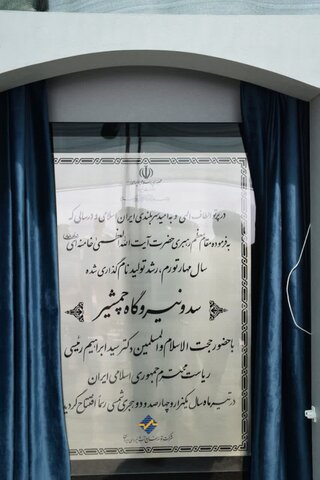 در پرتو الطاف الهی و به امید سربلندی ایران اسلامی و در سالی که
به فرموده مقام معظم رهبری حضرت آیت الله العظمی خامنه ای
سال مهار تورم، رشد تولید نام گذاری شده
سد و نیروگاه چمشیر
با حضور حجت الاسلام والمسلمین دکتر سید ابراهیم رئیسی
ریاست محترم جمهوری اسلامی ایران
در تیر ماه سال یکهزار و چهارصد و دو هجری شمسی رسماً افتتاح گردید